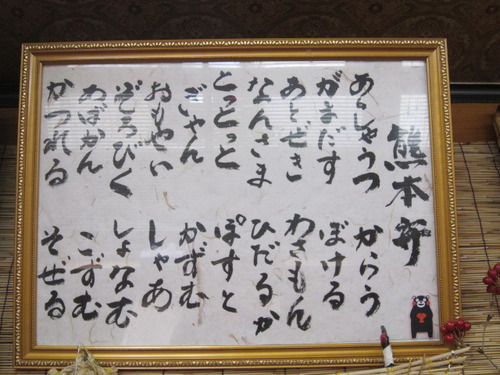 熊本弁
あくしゃうつ
がまだす
あとぜき
なんさま
とっとっと
おもやい
ぞろびく
あばかん
かつれる
からう
ぼける
わさもん
ひだるか
ぽすと
かずむ
しゃあ
しょなむ
こずむ
そぜる